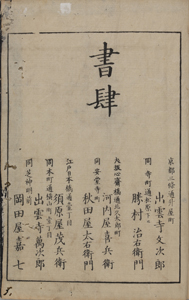 書肆
京都三條通升屋町
出雲寺文次郎
同寺町通松原下ル
勝村治右衛門
大坂心齋橋通北久太郎町
河内屋喜兵衛
同安堂寺町
秋田屋太右衛門
江戸日本橋通壹丁目
須原屋茂兵衛
同本町通横山町壹丁目
出雲寺萬次郎
同芝神明前
岡田屋嘉七